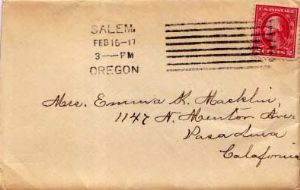 SALEM.
FEB 16-17
3—PM
OREGON
U.S. POSTAGE
Mrs. Emma K. Macklin,
1147 N. Menton Ave
Pasadena
Calafornia